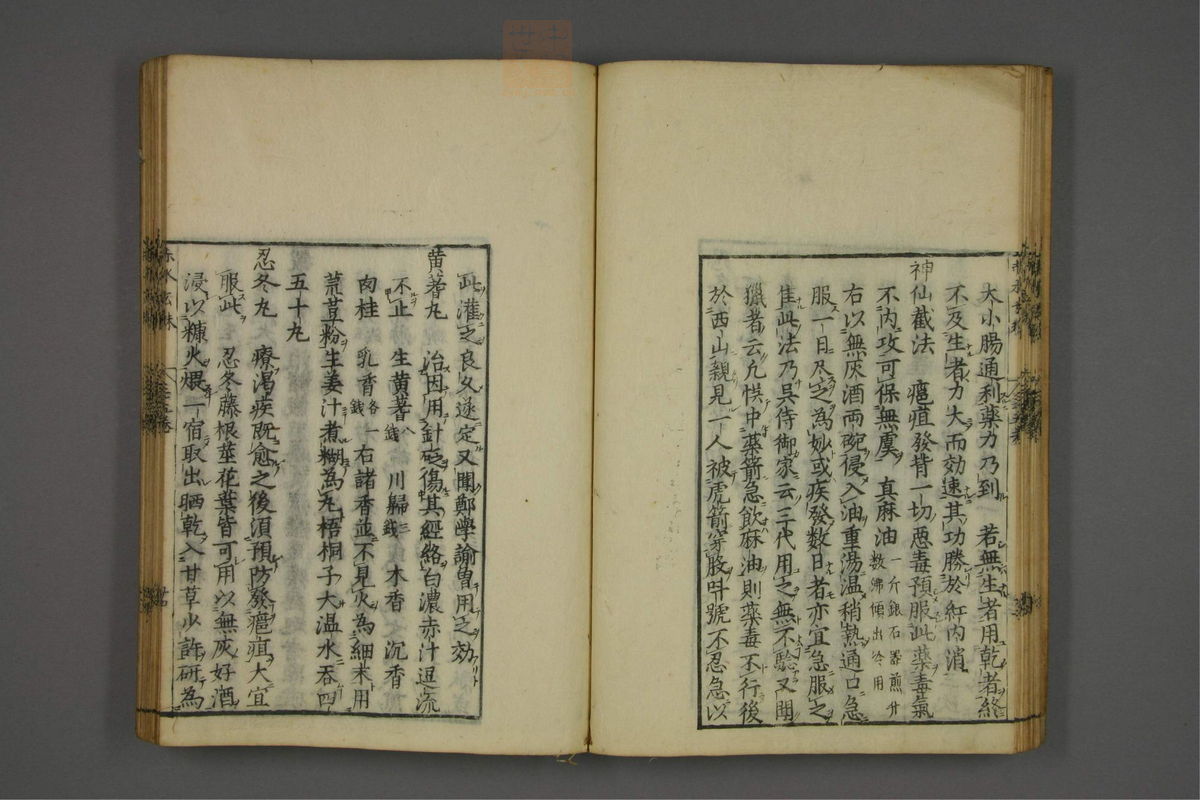 大小腸通利藥力乃到 若無生者用乾者終
不及生者力大而効速其功勝於紅內消
神仙截法 瘟疽發背一切惡毒預服此藥毒氣
不內攻可保無虞 真麻油 一斤銀石器煎數沸傾出冷用
右以無灰酒兩碗侵入油重湯温稍熱通口急
服一日尽之為妙或疾發数日者亦宜急服之
隹此法乃呉侍御家云三代用之無不驗又聞
獵者云凢悞中藥箭急飲麻油則藥毒不行後
於西山親見一人被虎箭穿股呌號不忍急以
此灌之良久遂定又聞鄭學諭曽用之効
黄蓍丸 治因用針砭傷其經絡白濃赤汁逗流
不止 生黄蓍八錢 川歸三錢 木香 沉香
肉桂 乳香各一錢 右諸香並不見火為細末用
菉荳粉生姜汁煮糊為丸梧桐子大温水吞四
五十丸
忍冬丸 療渴疾既愈之後須預防發瘟疽大宜
服此 忍冬藤根莖花葉皆可用以無灰好酒
浸以糠火煨一宿取出晒乾入甘草少許研為